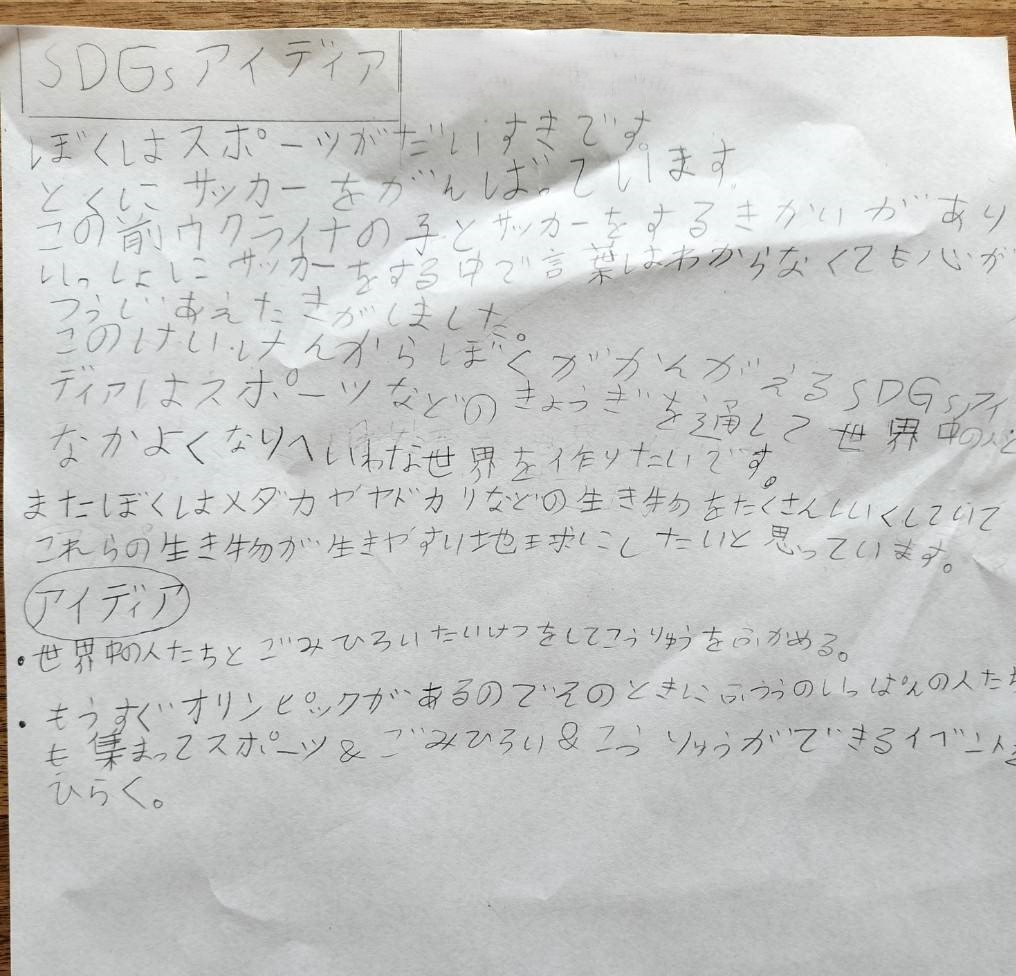 SDGsアイディア
ぼくはスポーツがだいすきです
とくにサッカーをがんばっています。
この前ウクライナの子とサッカーをするきかいがあり
いっしょにサッカーをする中で言葉はわからなくても心が
つうじあえたきがしました。
このけいけんからぼくがかんがえるSDGsアイ
ディアはスポーツなどのきょうぎを通して世界中の人と
なかよくなりへいわな世界を作りたいです。
またぼくはメダカやヤドカリなどの生き物をたくさんしいくしていて
これらの生き物が生きやすい地球にしたいと思っています。
アイディア
・世界中の人たちとごみひろいたいけつをしてこうりゅうをふかめる。
・もうすぐオリンピックがあるのでそのときにふつうのいっぱんの人たち
も集まってスポーツ&ごみひろい&こうりゅうができるイベントを
ひらく。